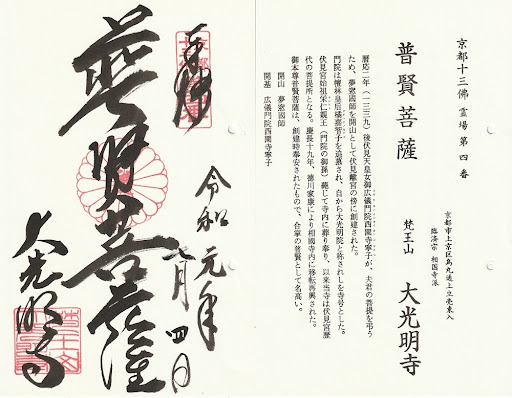 京都十三佛 霊場 第四番
京都市上京区烏丸通上立売東入
臨済宗 相国寺派
普賢菩薩 梵王山 大光明寺
暦応二年(一三三九)後伏見天皇女御広儀門院西園寺寧子が、夫君の菩提を弔う
ため、夢窓國師を開山として伏見離宮の傍に創建された。
門院は檀林皇后橘嘉智子を追慕され、自から大光明院と称されしを寺号とした。
伏見宮始祖栄仁親王(門院の御孫)薨じて寺内に葬り奉り、以来当寺は伏見宮歴
代の菩提所となる。慶長十九年、徳川家康により相國寺内に移転再興された。
御本尊普賢菩薩は、創建時奉安されたもので、合掌の普賢として名高い。
開山 夢窓國師
開基 広儀門院西園寺寧子
奉拝
令和元年 月四日
普賢菩薩
大光明寺